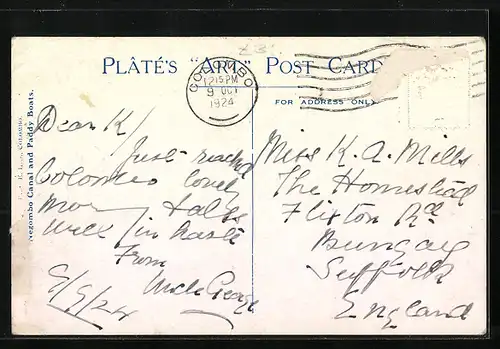 PLÂTÉ'S "ART" POST CARD
COLOMBO
12 15 PM
9 OCT
1924
FOR ADDRESS ONLY
COLOMBO.
Negombo Canal and Paddy Boats.
Dear K/
Just reachd
Colombo lovely
well / in haste
From
Uncle George
9/9/24
Miss K. A. Mills
The Homestead
Flixton Rd
Bungay
Suffolk
England